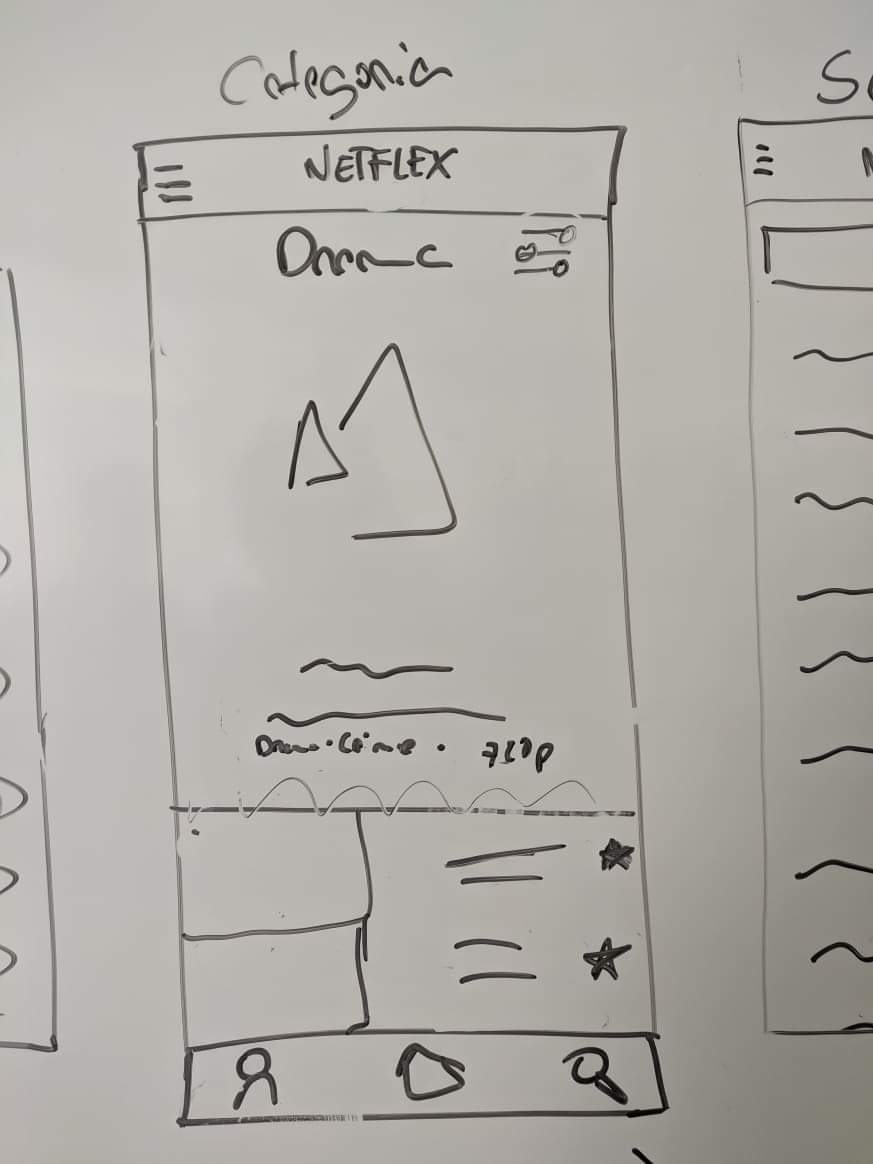 Categoria
Se
NETFLEX
N
Drama
Drama · Crime · 720p